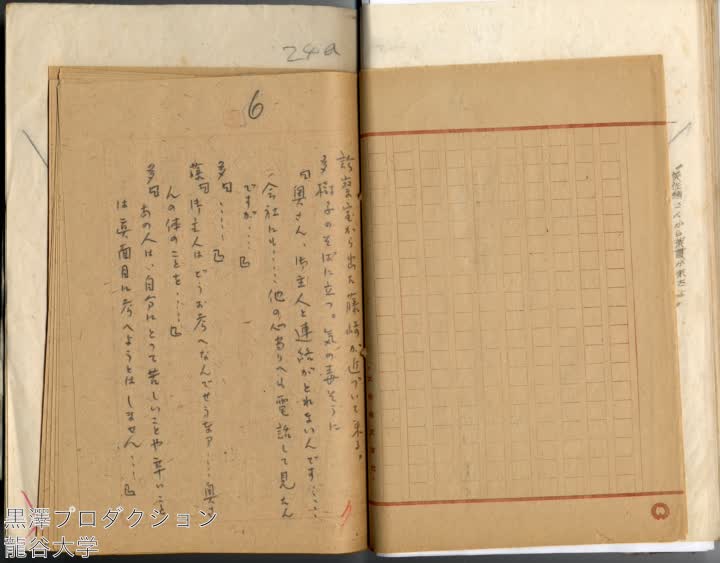 24a
6
診察室から出た藤崎が近づいて来る。
多樹子のそばに立つ。気の毒そうに
「奥さん、御主人と連絡がとれないんです……
会社にも……他の心当りへも電話して見たん
ですが……」
多「……」
藤「御主人はどうお考へなんでせうなァ……奥さ
んの体のことを……」
多「あの人は、自分にとって苦しいことや辛いこと
は真面目に考へようとはしません……」
黒澤プロダクション
龍谷大学